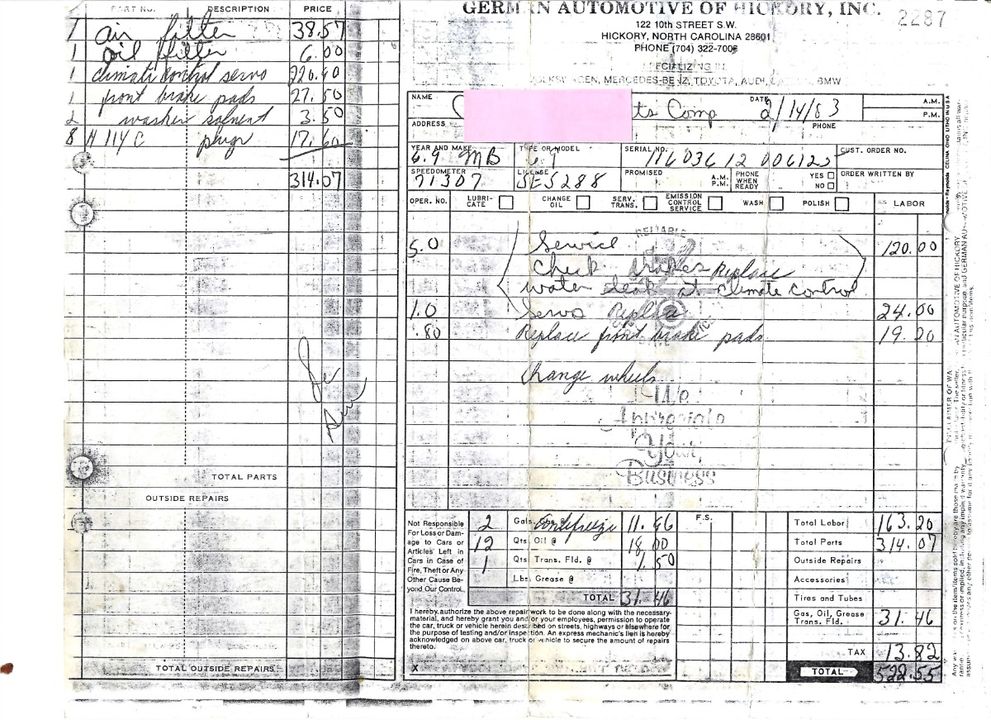 PART NO. DESCRIPTION PRICE
1 air filter 38.57
1 oil filter 6.00
1 climate control servo 220.90
1 front brake pads 27.50
2 washer solvent 3.50
8 H 114 C plugs 17.60
314.07
TOTAL PARTS
OUTSIDE REPAIRS
TOTAL OUTSIDE REPAIRS
GERMAN AUTOMOTIVE OF HICKORY, INC. 2287
122 10th STREET S.W.
HICKORY, NORTH CAROLINA 28601
PHONE (704) 322-7006
SPECIALIZING IN
VOLKSWAGEN, MERCEDES-BENZ, TOYOTA, AUDI, DATSUN, BMW
NAME ts Comp DATE 2/14/83 A.M. P.M.
ADDRESS PHONE
YEAR AND MAKE 6.9 MB TYPE OR MODEL 6.9 SERIAL NO. 116036 12 006125 CUST. ORDER NO.
SPEEDOMETER 71307 LICENSE SES288 PROMISED A.M. P.M. PHONE WHEN READY YES NO ORDER WRITTEN BY
OPER. NO. LUBRICATE CHANGE OIL SERV. TRANS. EMISSION CONTROL SERVICE WASH POLISH LABOR
RELIABLE
5.0 Service 120.00
Check brakes Replace
water leak at climate control
1.0 Servo Replace 24.00
.80 Replace front brake pads 19.20
Change wheels
We
Appreciate
Your
Business
Not Responsible For Loss or Damage to Cars or Articles Left in Cars in Case of Fire, Theft or Any Other Cause Beyond Our Control.
2 Gals. Antifreeze 11.96 F.S.
12 Qts. Oil @ 18.00
1 Qts. Trans. Fld. @ 1.50
Lbs. Grease @
TOTAL 31.46
I hereby authorize the above repair work to be done along with the necessary
material, and hereby grant you and/or your employees, permission to operate
the car, truck or vehicle herein described on streets, highways or elsewhere for
the purpose of testing and/or inspection. An express mechanic's lien is hereby
acknowledged on above car, truck or vehicle to secure the amount of repairs
thereto.
X
Total Labor 163.20
Total Parts 314.07
Outside Repairs
Accessories
Tires and Tubes
Gas, Oil, Grease Trans. Fld. 31.46
TAX 13.82
TOTAL 522.55